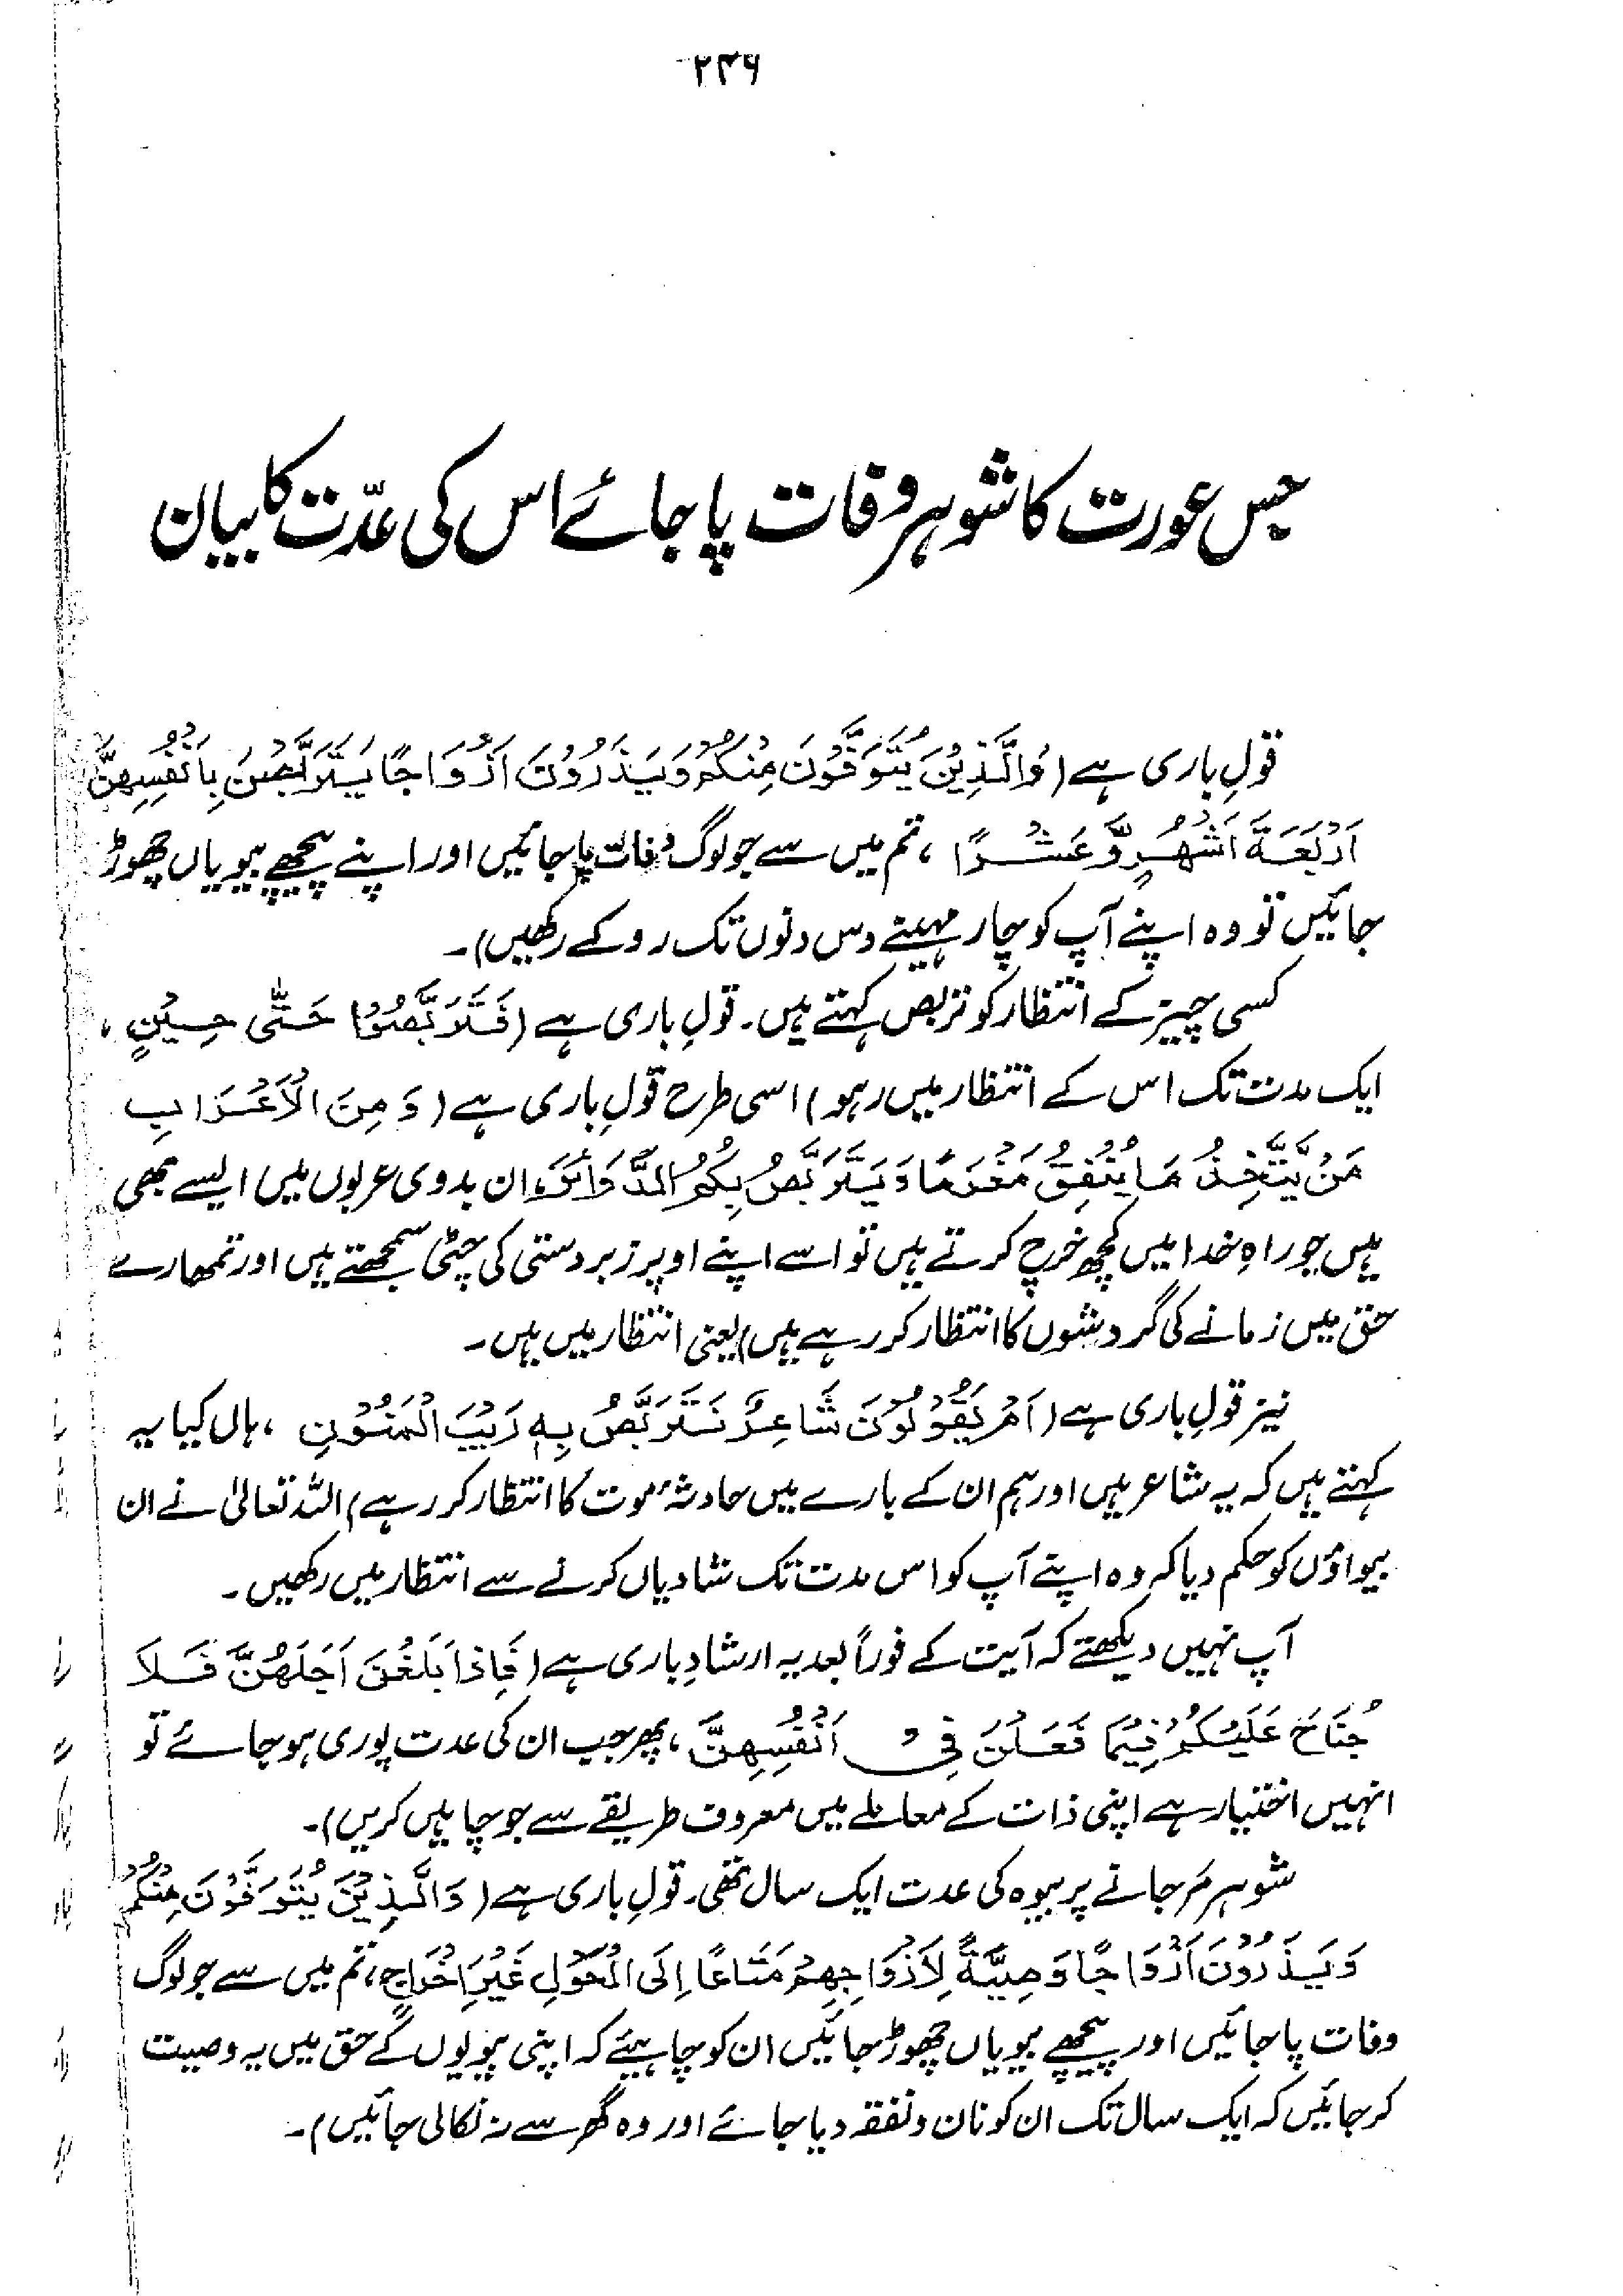 ۲۴۶
جس عورت کا شوہر وفات پا جائے اس کی عدّت کا بیان
قولِ باری ہے (وَالَّذِيْنَ يُتَوَفَّوْنَ مِنْكُمْ وَيَذَرُوْنَ اَزْوَاجًا يَتَرَبَّصْنَ بِاَنْفُسِهِنَّ
اَرْبَعَةَ اَشْهُرٍ وَّعَشْرًا ، تم میں سے جو لوگ وفات پا جائیں اور اپنے پیچھے بیویاں چھوڑ
جائیں تو وہ اپنے آپ کو چار مہینے دس دنوں تک روکے رکھیں)۔
کسی چیز کے انتظار کو تربص کہتے ہیں۔ قولِ باری ہے (فَتَرَبَّصُوْا حَتّٰى حِيْنٍ ،
ایک مدت تک اس کے انتظار میں رہو) اسی طرح قولِ باری ہے (وَ مِنَ الْاَعْرَابِ
مَنْ يَّتَّخِذُ مَا يُنْفِقُ مَغْرَمًا وَيَتَرَبَّصُ بِكُمُ الدَّوَائِرَ، ان بدوی عربوں میں ایسے بھی
ہیں جو راہِ خدا میں کچھ خرچ کرتے ہیں تو اسے اپنے اوپر زبردستی کی چٹی سمجھتے ہیں اور تمھارے
حق میں زمانے کی گردشوں کا انتظار کر رہے ہیں) یعنی انتظار میں ہیں۔
نیز قولِ باری ہے (اَمْ يَقُوْلُوْنَ شَاعِرٌ نَتَرَبَّصُ بِهٖ رَيْبَ الْمَنُوْنِ ، ہاں کیا یہ
کہتے ہیں کہ یہ شاعر ہیں اور ہم ان کے بارے میں حادثۂ موت کا انتظار کر رہے) اللہ تعالیٰ نے ان
بیواؤں کو حکم دیا کہ وہ اپنے آپ کو اس مدت تک شادیاں کرنے سے انتظار میں رکھیں۔
آپ نہیں دیکھتے کہ آیت کے فوراً بعد یہ ارشادِ باری ہے (فَاِذَا بَلَغْنَ اَجَلَهُنَّ فَلَا
جُنَاحَ عَلَيْكُمْ فِيْمَا فَعَلْنَ فِيْ اَنْفُسِهِنَّ ، پھر جب ان کی عدت پوری ہو جائے تو
انہیں اختیار ہے اپنی ذات کے معاملے میں معروف طریقے سے جو چاہیں کریں)۔
شوہر مَر جانے پر بیوہ کی عدت ایک سال تھی۔ قولِ باری ہے (وَالَّذِيْنَ يُتَوَفَّوْنَ مِنْكُمْ
وَيَذَرُوْنَ اَزْوَاجًا وَصِيَّةً لِاَزْوَاجِهِمْ مَتَاعًا اِلَى الْحَوْلِ غَيْرَ اِخْرَاجٍ، تم میں سے جو لوگ
وفات پا جائیں اور پیچھے بیویاں چھوڑ جائیں ان کو چاہیئے کہ اپنی بیویوں کے حق میں یہ وصیت
کر جائیں کہ ایک سال تک ان کو نان و نفقہ دیا جائے اور وہ گھر سے نہ نکالی جائیں)۔